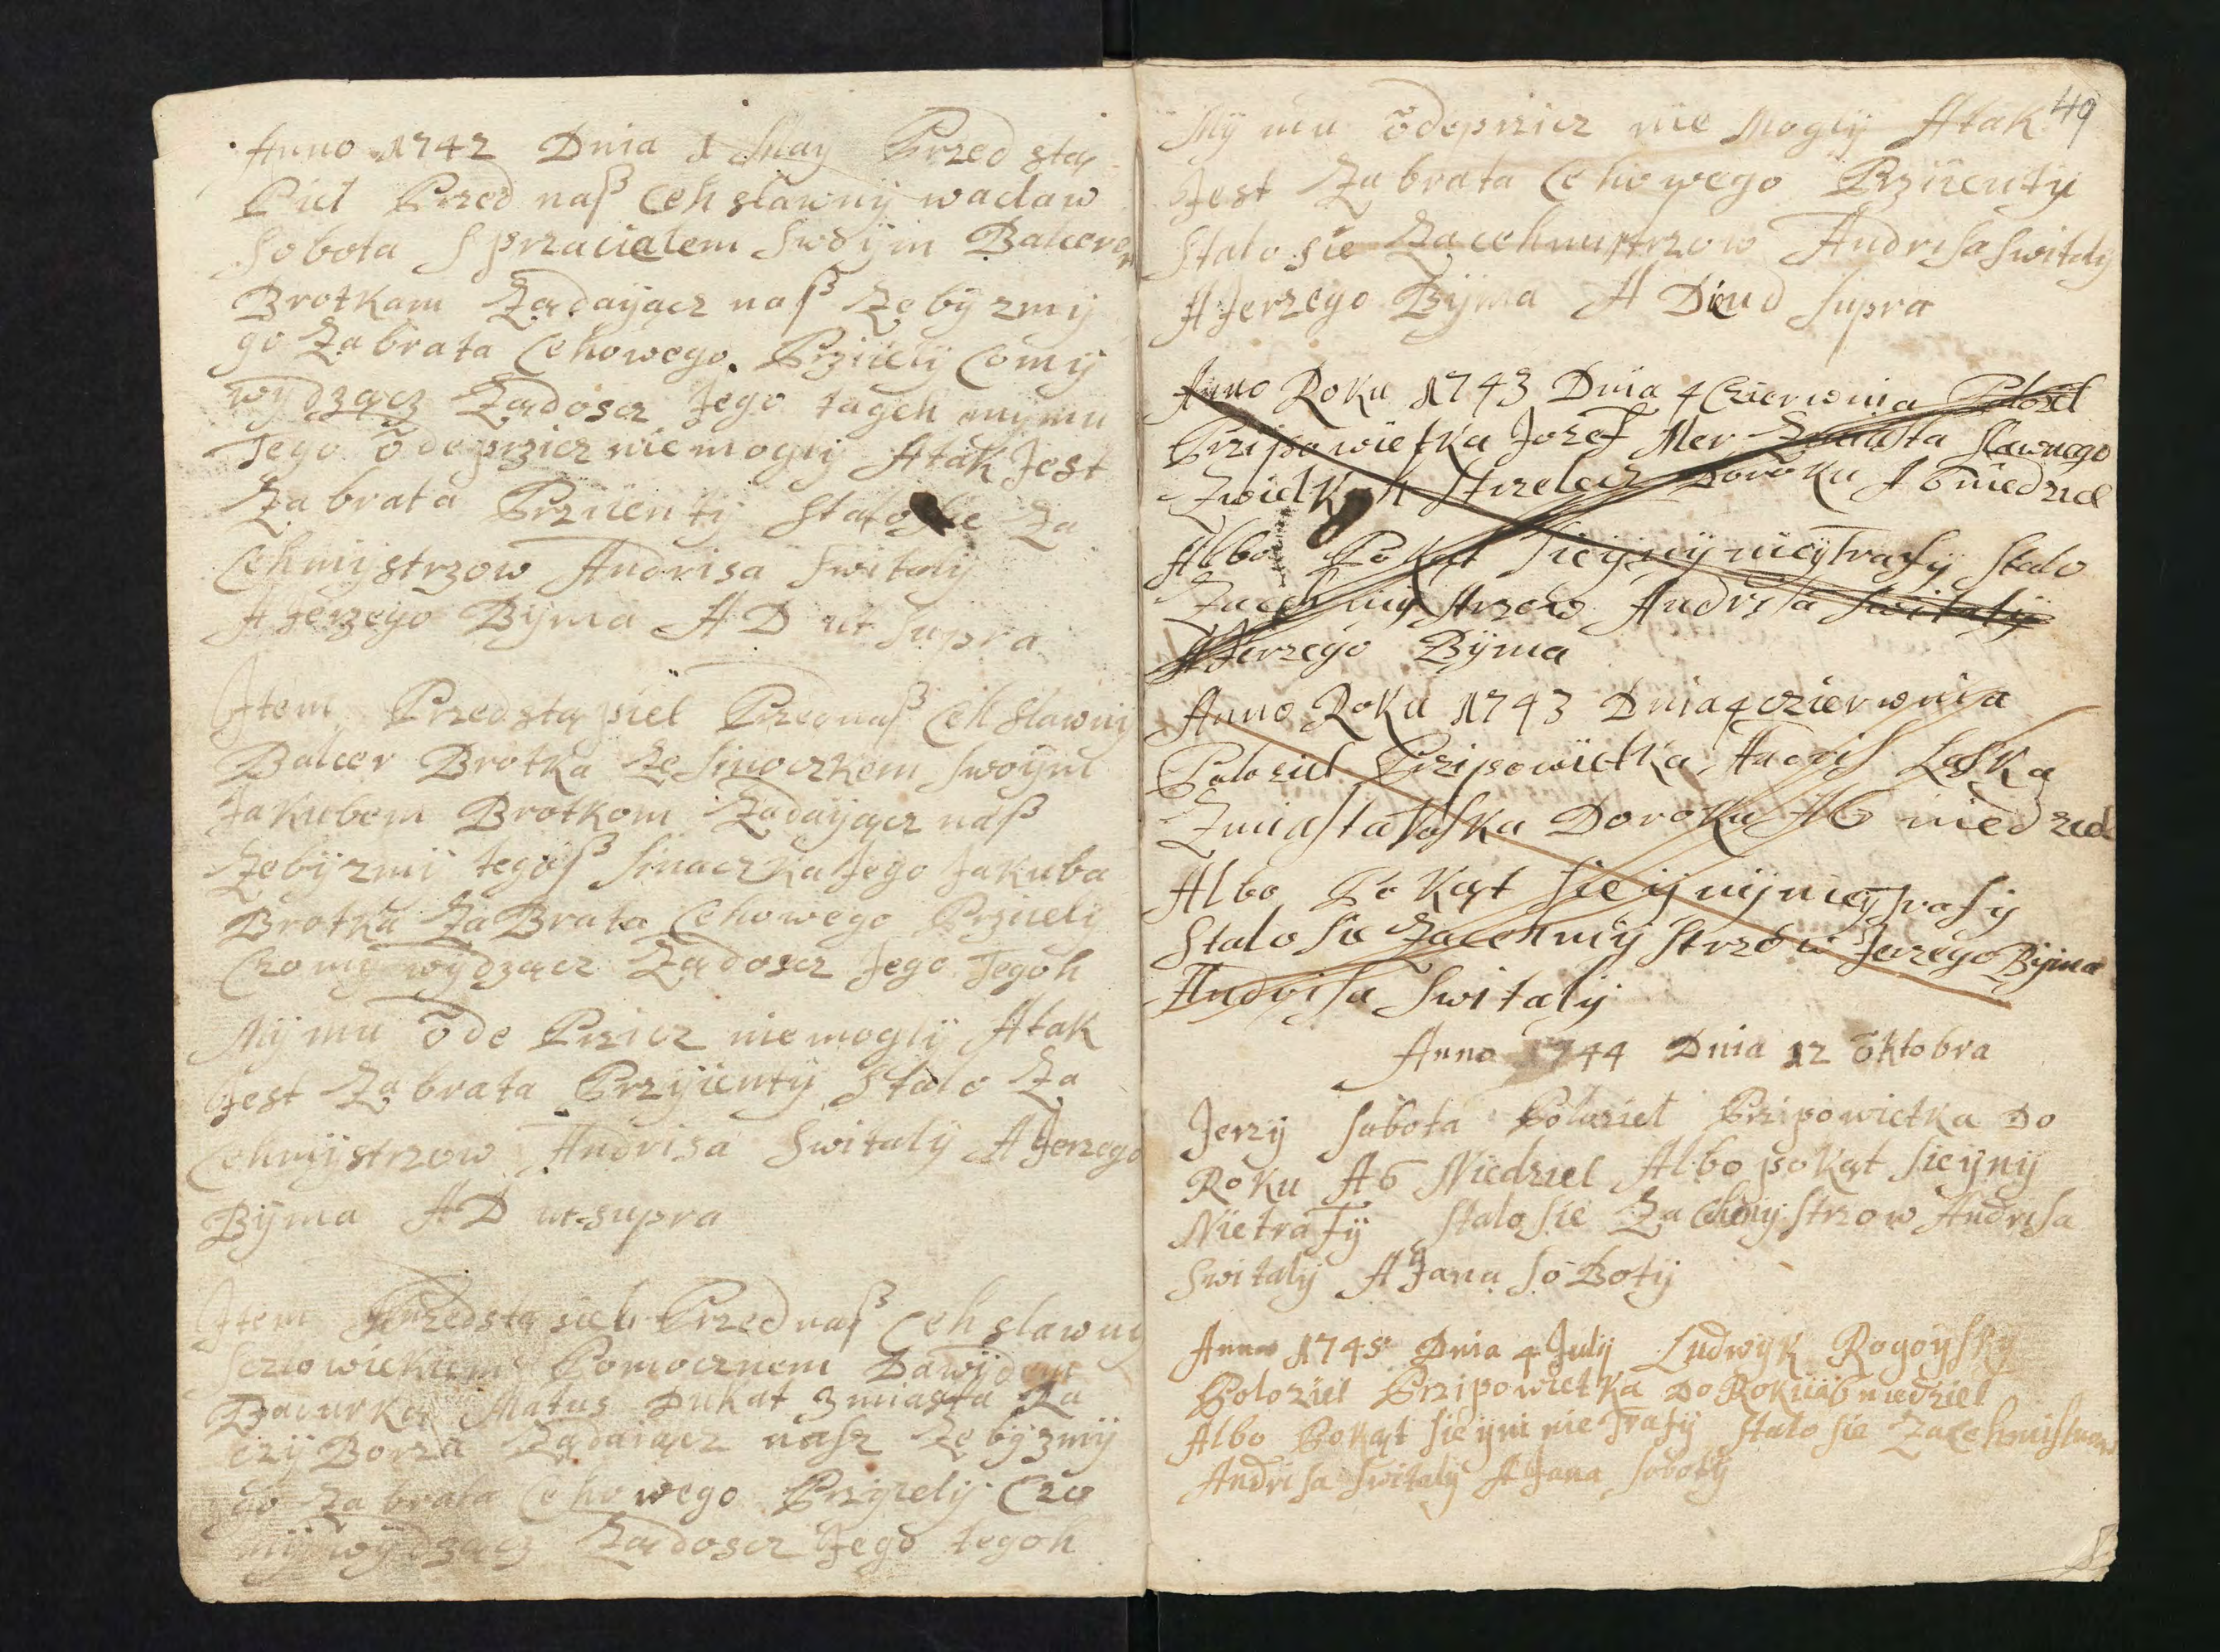 Anno 1742 Dnia 1 May Przed stą
Piel Przed naß Ceh slawny waclaw
Sobota S przacialem Swoym Balcerem
Brotkam Ządayącz naß Ze by zmy
go Za brata Cehowego Prziiely Comy
wydzącz Ządoscz Jego tageh mymu
Tego odeprzicz niemogly Atak Jest
Za brata Prziienty Stalo Sie Za
Cehmystrzow Andrisa Switaly
A Jerzego Byma A D ut Supra
Item Przedstąpiel Przednaß Ceh Slawny
Balcer Brotka Ze Sinoczkem Swoym
Jakubem Brotkom Ządayącz naß
Zebyzmi tegoß Sinaczka Jego Jakuba
Brotku Za Brata Cehowego Prziiely
Czomy wydzącz Ządoscz Jego Tegoh
My mu ode Przicz niemogly Atak
Jest Za brata Przyienty Stalo Za
Cehmystrzow Andrisa Switaly A Jerzego
Byma A D ut supra
Item Przedstą piel Przed naß Ceh slawny
Pomocznem Dawydem
Matus Dukat z miasta Ra
czy Borza Ządaiącz nasz Ze by zmy
go Za brata Cehowego Przyiely Czo
my wydzącz Ządoscz Jego tegoh
49
My mu odeprzicz nie Mogly Atak
Jest Za brata Cehowego Prziienty
Stalo sie Za cehmistrzow Andrisa Switaly
A Jerzego Byma A Supra
Anno Roku 1743 Dnia 4 Czierwnia Polozil
Przipowietka Jozef Mer Zmiasta Slawnego
Strzelecz Doroku A 6 niedziel
Albo Pokąt Sieyny nieytrafy Stalo
Zacehmystrzow Andrisa Switaly
A Jerzego Byma
Anno Roku 1743 Dnia 4 czierwnia
Poloziel Przipowietka Andris Laska
Zmiasta Doroku A 6 niedziel
Albo Pokąt Sie yny nieytrafy
Stalo Sie Zacehmystrzow Jerzego Byma
Andrisa Switaly
Anno 1744 Dnia 12 oktobra
Jerzy Sobota Poloziel Przipowietka Do
Roku A 6 Niedziel Albo pokąt Sieyny
Nietrafy Stalo Sie Za Cehmystrzow Andrisa
Switaly A Jana So Boty
Anno 1745 Dnia 4 July Ludwyk Rogoysky
Poloziel Przipowietka Do Roku a 6 niedziel
Albo Pokąt Sieyni nie Trafy Stalo Sie Zacehmistrzow
Andrisa Switaly A Jana Soboty